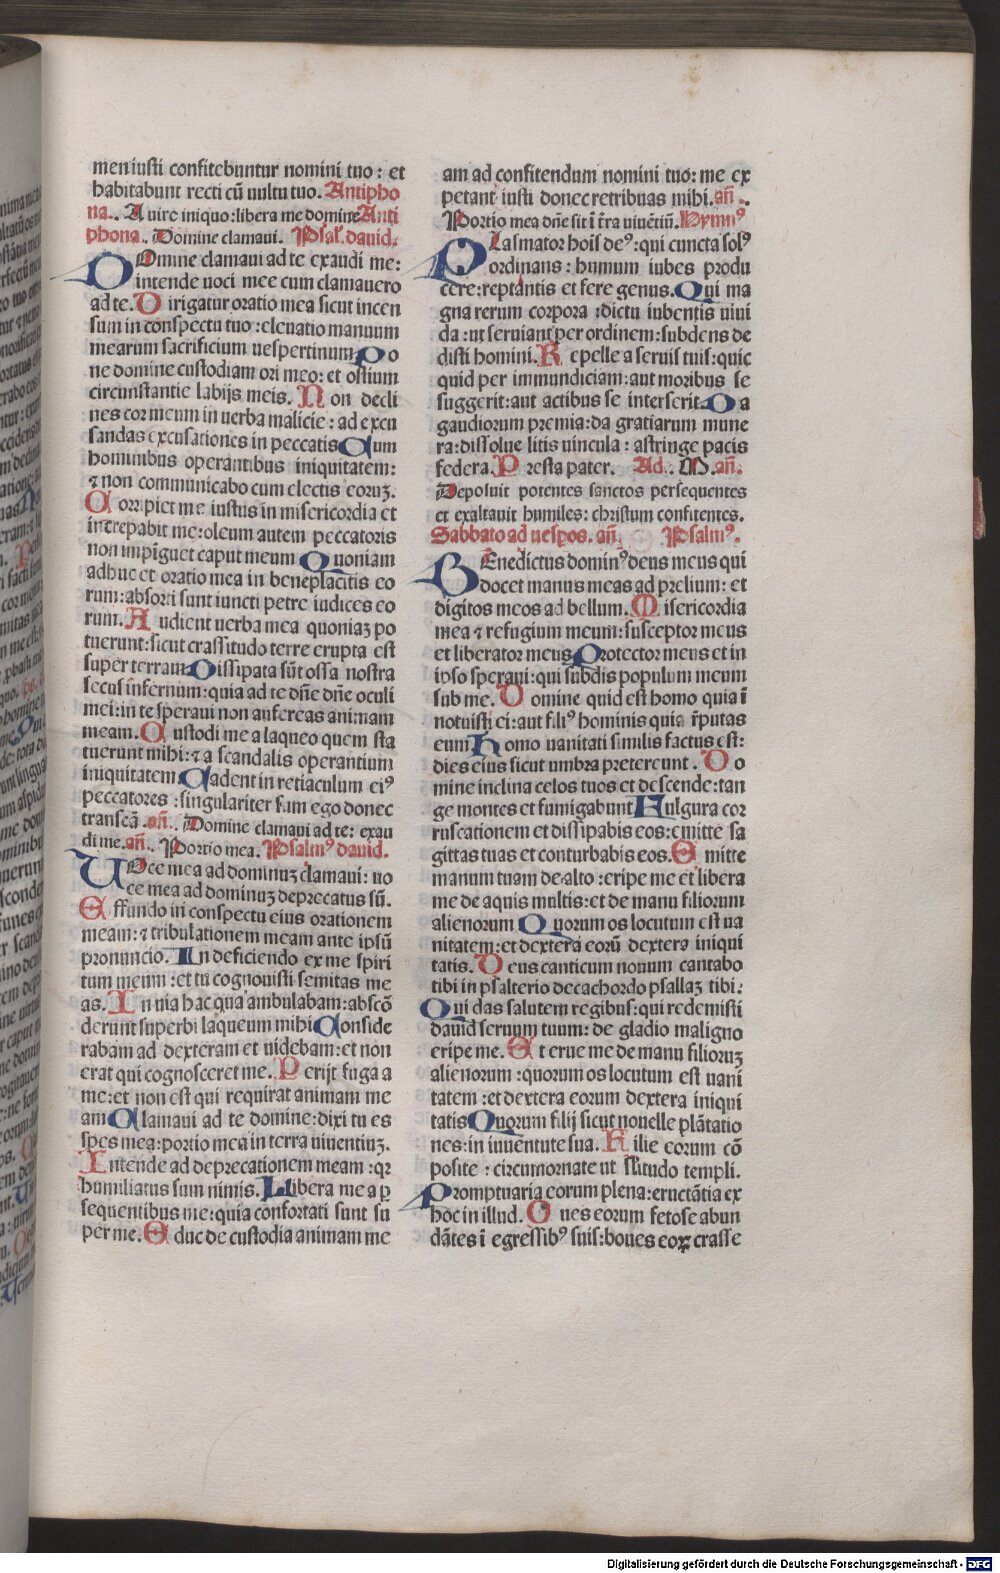 men iusti confitebuntur nomini tuo : et
habitabunt recti cũ uultu tuo. Antipho
na.. A uiro iniquo : libera me domine Anti
phona.. Domine clamaui. Psal. dauid.
DOmine clamaui ad te exaudi me :
intende uoci mee cum clamauero
ad te. Dirigatur oratio mea sicut incen
sum in conspectu tuo : eleuatio manuum
mearum sacrificium uespertinum Po
ne domine custodiam ori meo : et ostium
circunstantie labijs meis. Non decli
nes cor meum in uerba malicie : ad excu
sandas excusationes in peccatis Cum
hominibus operantibus iniquitatem :
⁊ non communicabo cum electis eoruꝫ.
Corripiet me iustus in misericordia et
increpabit me : oleum autem peccatoris
non impiguet caput meum Quoniam
adhuc et oratio mea in beneplacitis eo
rum : absorti sunt iuncti petre iudices eo
rum. Audient uerba mea quoniaꝫ po
tuerunt : sicut crassitudo terre erupta est
super terram Dissipata sũt ossa nostra
secus infernum : quia ad te dñe dñe oculi
mei : in te speraui non aufereas animam
meam. Custodi me a laqueo quem sta
tuerunt mihi : ⁊ a scandalis operantium
iniquitatem Cadent in retiaculum eiꝰ
peccatores : singulariter sum ego donec
transeã. añ.. Domine clamaui ad te : exau
di me. añ. Portio mea. Psalmꝰ dauid.
UOce mea ad dominuꝫ clamaui : uo
ce mea ad dominuꝫ deprecatus sũ.
Effundo in conspectu eius orationem
meam : ⁊ tribulationem meam ante ipsũ
pronuncio. In deficiendo ex me spiri
tum meum : et tu cognouisti semitas me
as. In uia hac qua ambulabam : abscõ
derunt superbi laqueum mihi Conside
rabam ad dexteram et uidebam : et non
erat qui cognosceret me. Perijt fuga a
me : et non est qui requirat animam me
am Clamaui ad te domine : dixi tu es
spes mea : portio mea in terra uiuentiuꝫ.
Intende ad deprecationem meam : qꝛ
humiliatus sum nimis. Libera me a ꝑ
sequentibus me : quia confortati sunt su
per me. Educ de custodia animam me
am ad confitendum nomini tuo : me ex
petant iusti donec retribuas mihi. añ..
Portio mea dñe sit ĩ tr̃a uiuẽtiũ. Hymnꝰ
PLasmator hoĩs deꝰ : qui cuncta solꝰ
ordinans : humum iubes produ
cere : reptantis et fere genus. Qui ma
gna rerum corpora : dictu iubentis uiui
da : ut seruiant per ordinem : subdens de
disti homini. Repelle a seruis tuis : quic
quid per immundiciam : aut moribus se
suggerit : aut actibus se interserit. Da
gaudiorum premia : da gratiarum mune
ra : dissolue litis uincula : astringe pacis
federa. Presta pater. Ad.. M. añ.
Deposuit potentes sanctos persequentes
et exaltauit humiles : christum confitentes.
Sabbato ad uesꝑos. añ. Psalmꝰ.
BEnedictus dominꝰ deus meus qui
docet manus meas ad prelium : et
digitos meos ad bellum. Misericordia
mea ⁊ refugium meum : susceptor meus
et liberator meus Protector meus et in
ipso speraui : qui subdis populum meum
sub me. Domine quid est homo quia ĩ
notuisti ei : aut filiꝰ hominis quia r̃putas
eum Homo uanitati similis factus est :
dies eius sicut umbra pretereunt. Do
mine inclina celos tuos et descende : tan
ge montes et fumigabunt Fulgura cor
ruscationem et dissipabis eos : emitte sa
gittas tuas et conturbabis eos. Emitte
manum tuam de alto : eripe me et libera
me de aquis multis : et de manu filiorum
alienorum Quorum os locutum est ua
nitatem : et dextera eorũ dextera iniqui
tatis. Deus canticum nouum cantabo
tibi in psalterio decachordo psallaꝫ tibi :
Qui das salutem regibus : qui redemisti
dauid seruum tuum : de gladio maligno
eripe me. Et erue me de manu filioruꝫ
alienorum : quorum os locutum est uani
tatem : et dextera eorum dextera iniqui
tatis Quorum filij sicut nouelle plãtatio
nes : in iuuentute sua. Filie eorum cõ
posite : circumornate ut sĩlitudo templi.
Promptuaria eorum plena : eructãtia ex
hoc in illud. Oues eorum fetose abun
dãtes ĩ egressibꝰ suis : boues eoꝝ crasse
Digitalisierung gefördert durch die Deutsche Forschungsgemeinschaft - DFG